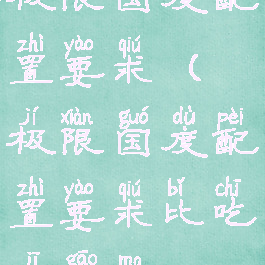 极限国度配
zhì yào qiú
置要求（
jí xiàn guó dù pèi
极限国度配
zhì yào qiú bǐ chī
置要求比吃
jī gāo ma